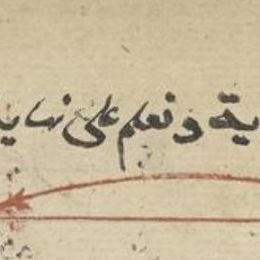 ية ونعلم على نهاية